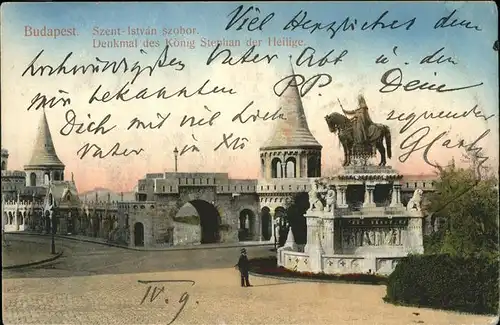 Budapest. Szent-István szobor.
Denkmal des König Stephan der Heilige.
Viel Herzliches dem
hochwürdigsten Vater Abt u. den
mir bekannten PP. Dein
Dich mit viel Liebe segnender
Vater in Xto
IV. 9.